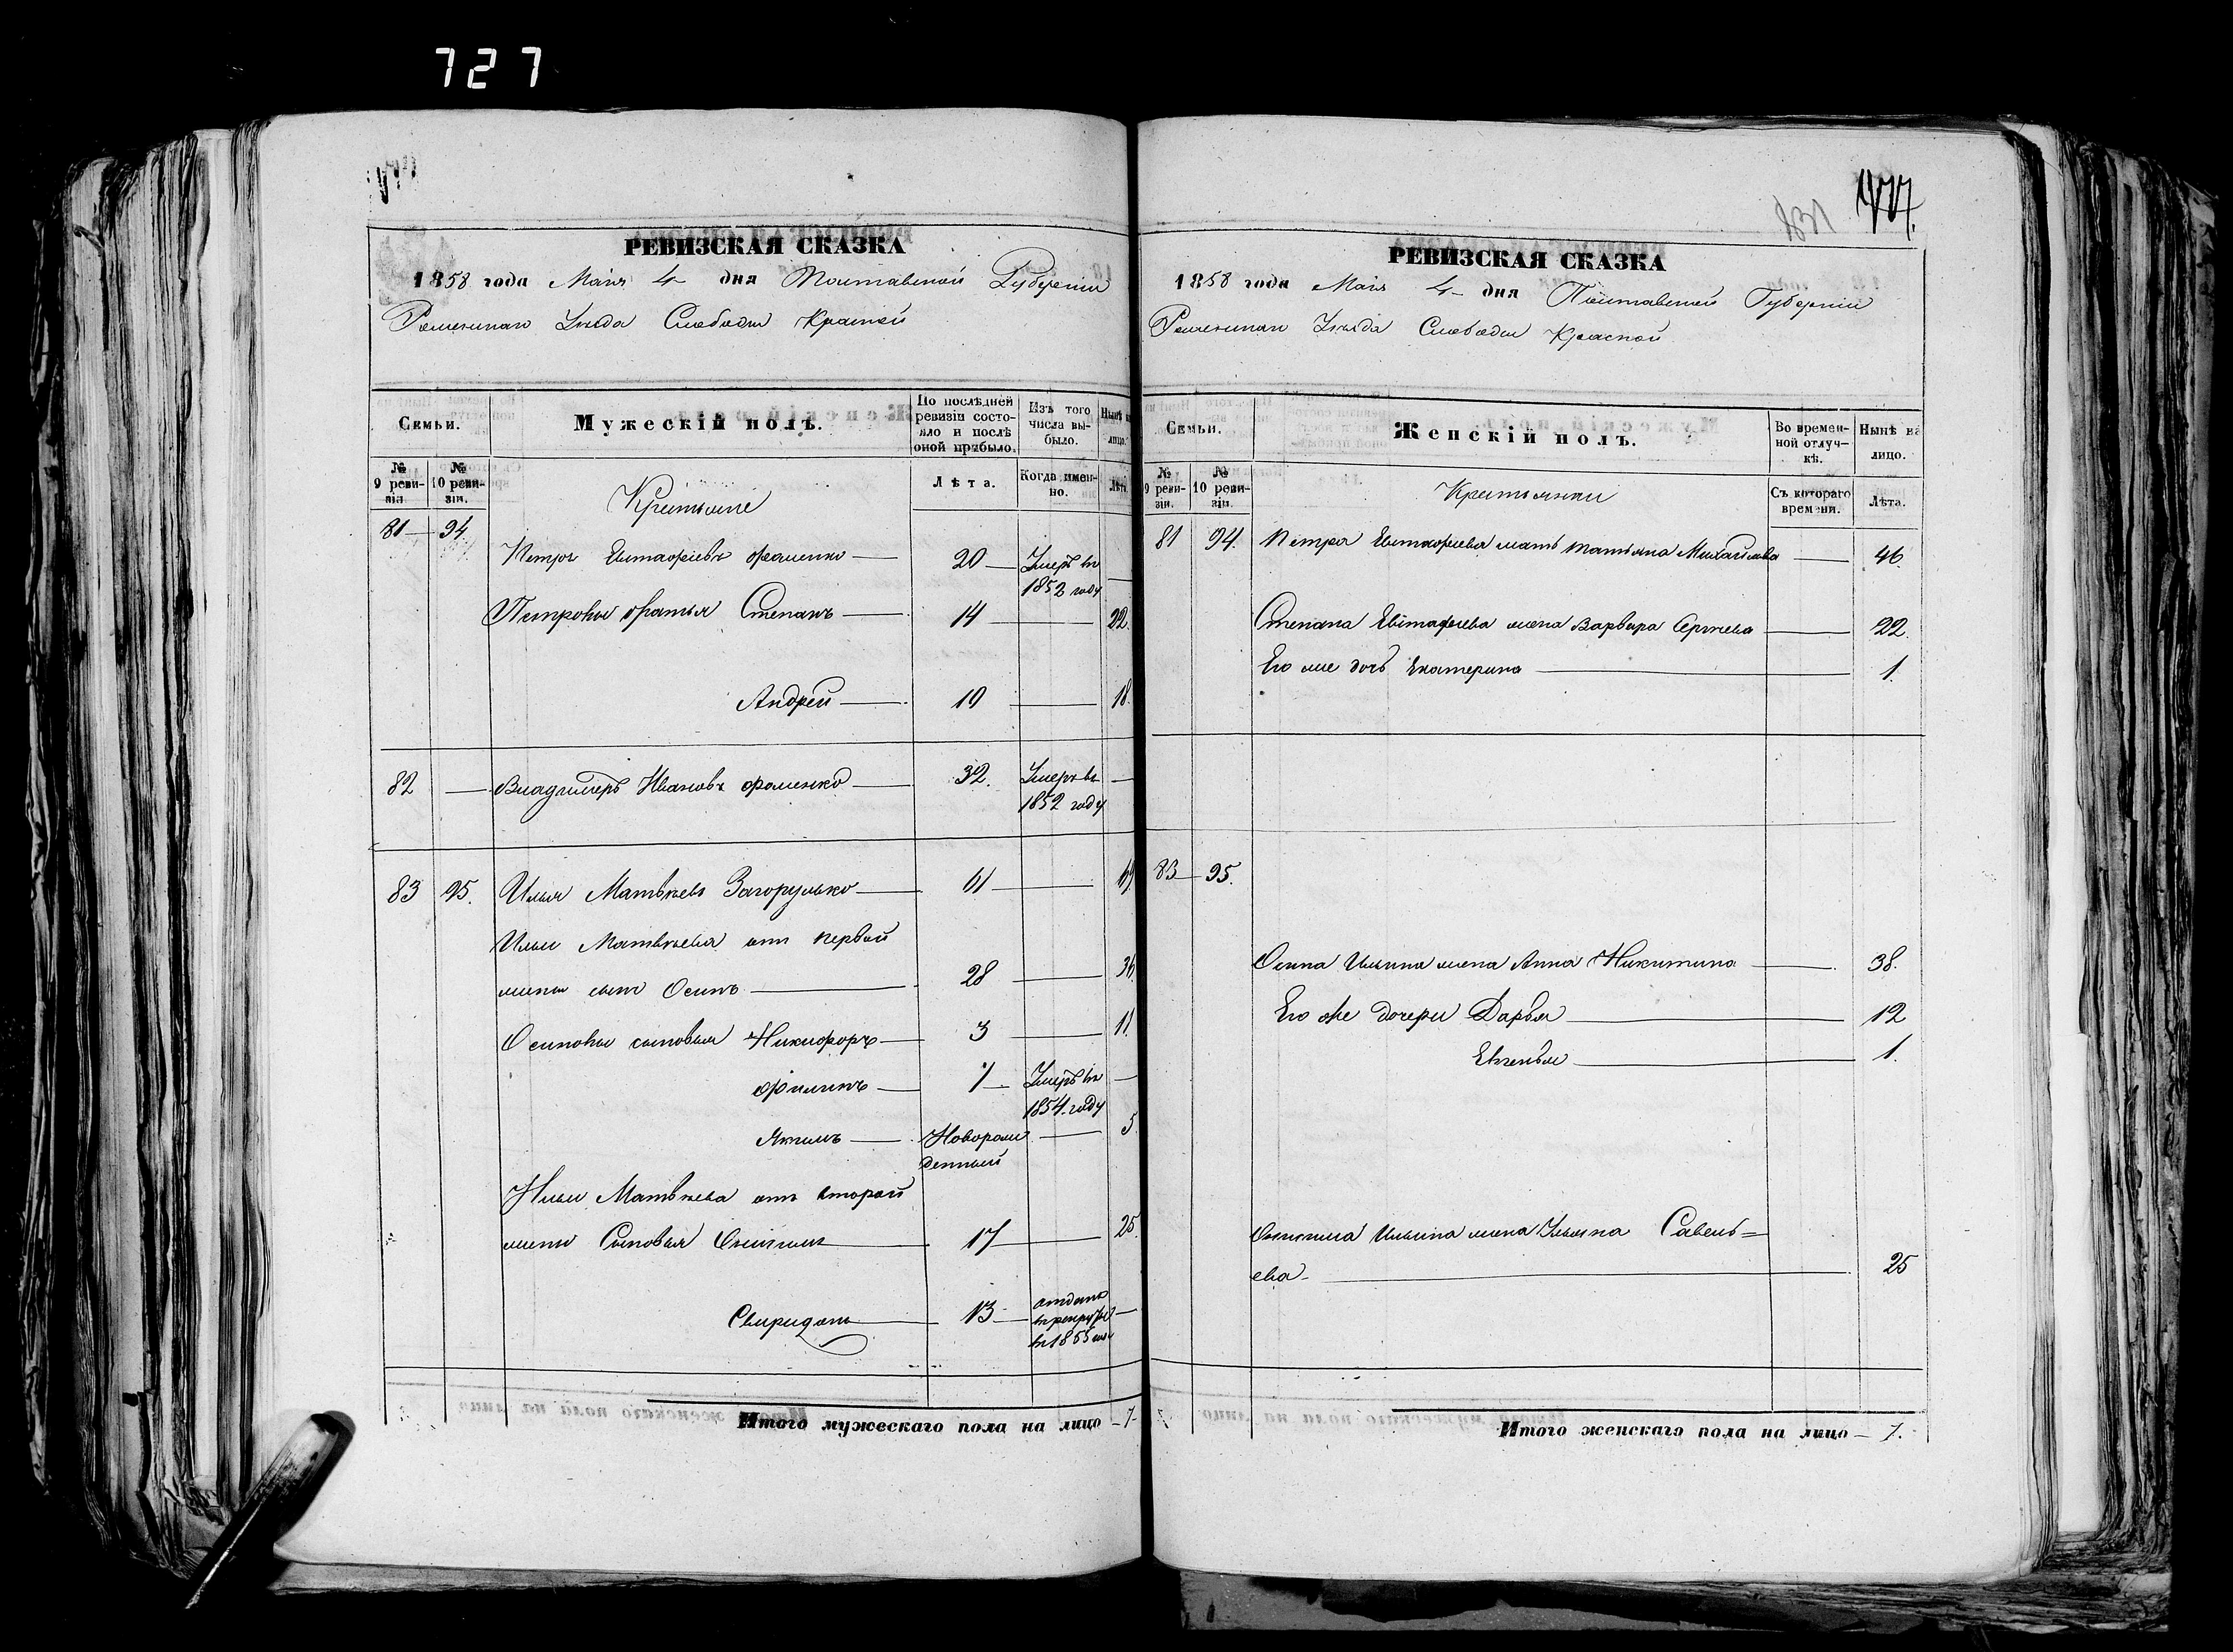 727
РЕВИЗСКАЯ СКАЗКА
1858 года Мая 4 дня Полтавской Губернии
Роменскаго Уезда Слободы Красной
Семьи.
Мужескій полъ.
По послѣдней ревизіи состояло и послѣ оной прибыло.
Изъ того числа выбыло.
Нынѣ на лицо.
№ 9 ревизіи.
№ 10 ревизіи.
Крестьяне
Лѣта.
Когда именно.
Лѣта.
81 94.
Петръ Евстафіевъ Фоменко 20 Умеръ въ 1852 году
Петровы братья Степанъ 14 22.
Андрей 10 18.
82 Владимиръ Ивановъ Фоменко 32. Умеръ въ 1852 году
83 95. Илья Матвѣевъ Загорулько 61 69
Ильи Матвѣева отъ первой
жены сынъ Осипъ 28 36.
Осиповы сыновья Никифоръ 3 11.
Филипъ 1 Умеръ въ 1854 году
Якимъ Новорожденный 5
Ильи Матвѣева отъ второй
жены Сыновья 17 25.
Свиридонъ 13 отданъ въ рекруты въ 1855 году
Итого мужескаго пола на лицо 7
477.
РЕВИЗСКАЯ СКАЗКА
1858 года Мая 4 дня Полтавской Губерніи
Роменскаго Уезда Слободы Красной
Семьи.
Женскій полъ.
Во временной отлучкѣ.
Нынѣ на лицо.
№ 9 ревизіи.
№ 10 ревизіи.
Крестьянки
Съ котораго времени.
Лѣта.
81 94. Петра Евстафіева мать Татьяна Михайлова 46.
Степана Евстафіева жена Варвара Сергѣева 22.
Его же дочь Екатерина 1.
83 95.
Осипа Ильина жена Анна Никитина 38.
Его же дочери Дарья 12
Евгенья 1.
Ильина жена Ульяна Савель=
ева 25
Итого женскаго пола на лицо 7.